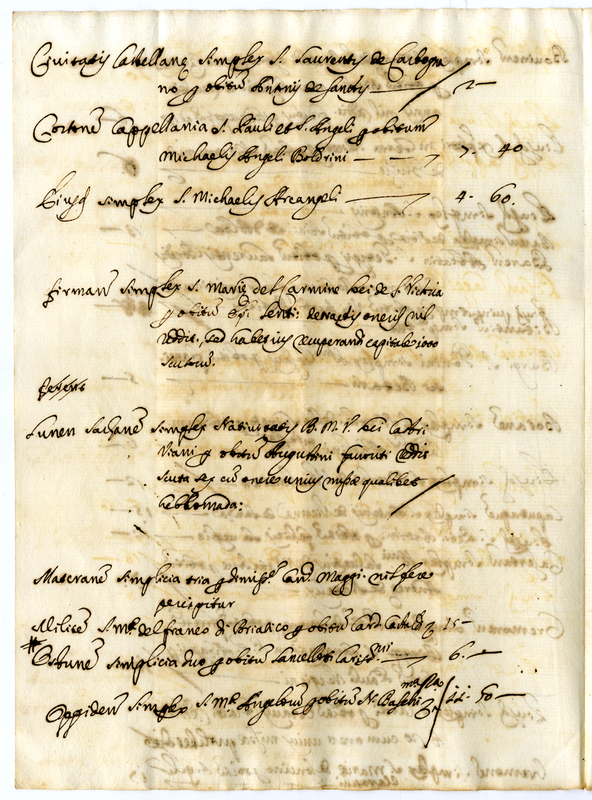 Civitatis Castellanę simplex S. Laurentij de Carbogna
no p obitũ Antonij de Sanctis — / 2 —
Cortonẽ Cappellania S. Pauli et S. Angeli p obitum
Michaelis Angeli Boldrini — — 7. 40
Eiusdẽ simplex S. Michaelis Arcangeli — 4. 60.
Firmanẽ simplex S. Marię del Carmine loci de S. Victoria
p obitũ detractis oneris nil
reddit, sed habet ius recuperandi capitale 1000
scutorum.
Lunen Sarzanẽ simplex Nativitatis B. M. V. loci Castri
Viani p obitũ Augustini Favoriti reddit
scuta sex cũ onere unius missæ qualibet
hebdomada:
Materanẽ simplicia tria p dimiss. Card. Maggi. nil fere
percipitur
Militẽ S. Mẹ del franco di Briatico p obitũ Card. 15 —
# Ostunẽ simplicia duo p obitũ Lancellotti — 6. —
Oppiden simplex S. Mẹ Angelorũ p obitũ N. 11. 50 —